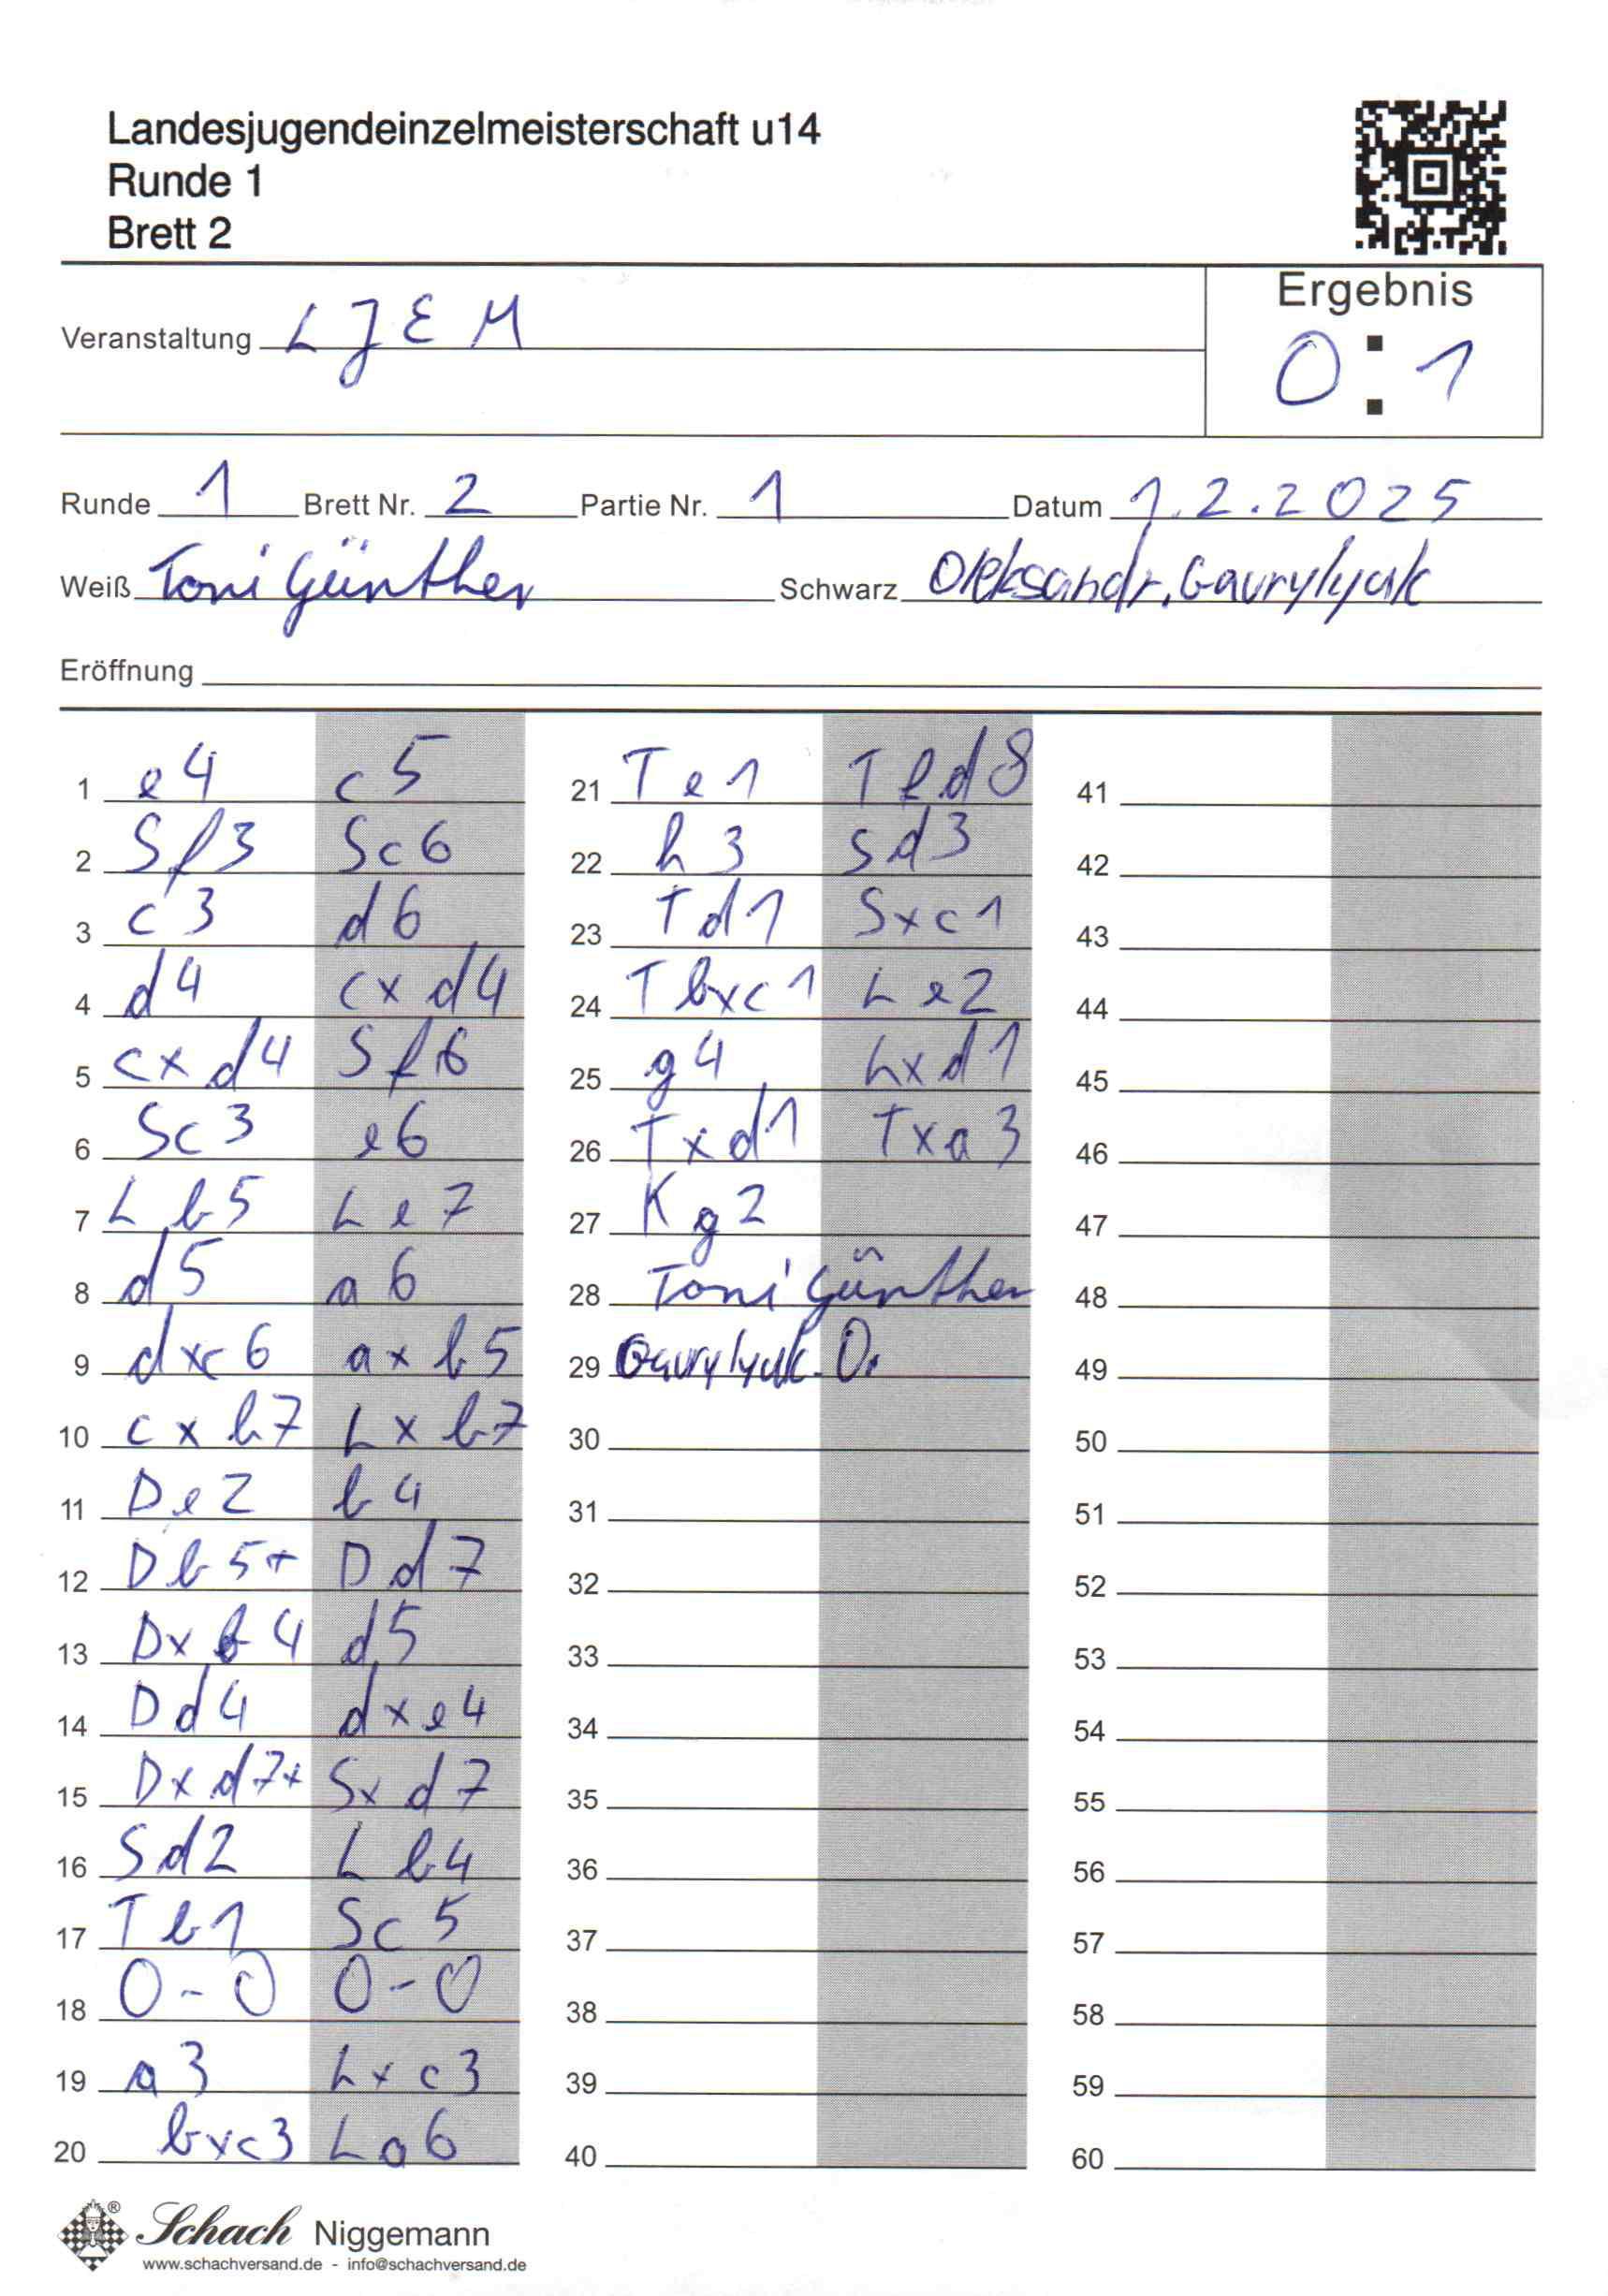 Landesjugendeinzelmeisterschaft u14
Runde 1
Brett 2
Ergebnis
Veranstaltung LJEM
0:1
Runde 1 Brett Nr. 2 Partie Nr. 1 Datum 1.2.2025
Weiß Toni Günther Schwarz Oleksandr. Gavrylyuk
Eröffnung
1 e4 c5 21 Te1 Tfd8 41
2 Sf3 Sc6 22 h3 Sd3 42
3 c3 d6 23 Td1 Sxc1 43
4 d4 cxd4 24 Tbxc1 Le2 44
5 cxd4 Sf6 25 g4 Lxd1 45
6 Sc3 e6 26 Txd1 Txa3 46
7 Lb5 Le7 27 Kg2 47
8 d5 a6 28 Toni Günther 48
9 dxc6 axb5 29 Gavrylyuk. O. 49
10 cxb7 Lxb7 30 50
11 De2 b4 31 51
12 Db5+ Dd7 32 52
13 Dxb4 d5 33 53
14 Dd4 dxe4 34 54
15 Dxd7+ Sxd7 35 55
16 Sd2 Lb4 36 56
17 Tb1 Sc5 37 57
18 0-0 0-0 38 58
19 a3 Lxc3 39 59
20 bxc3 La6 40 60
® Schach Niggemann
www.schachversand.de - info@schachversand.de